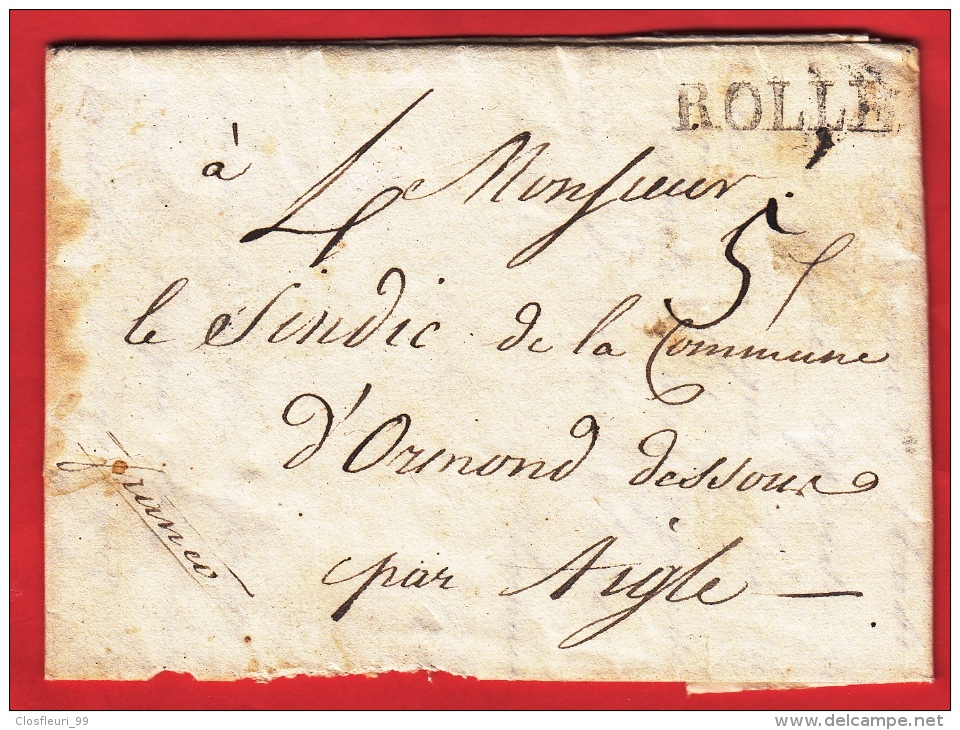 ROLLE
à Monsieur
4
5
le Sindic de la Commune
d'Ormond dessous
par Aigle —
franco
Closfleuri_99
www.delcampe.net